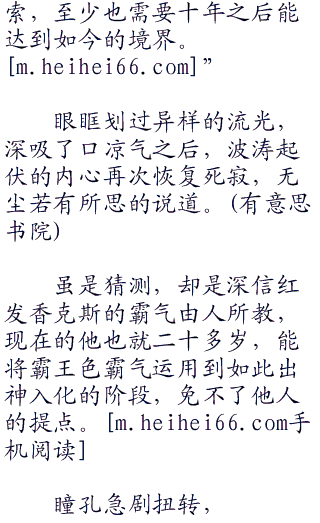 索，至少也需要十年之后能
达到如今的境界。
[m.heihei66.com]”
眼眶划过异样的流光，
深吸了口凉气之后，波涛起
伏的内心再次恢复死寂，无
尘若有所思的说道。(有意思
书院)
虽是猜测，却是深信红
发香克斯的霸气由人所教，
现在的他也就二十多岁，能
将霸王色霸气运用到如此出
神入化的阶段，免不了他人
的提点。[m.heihei66.com手
机阅读]
瞳孔急剧扭转，